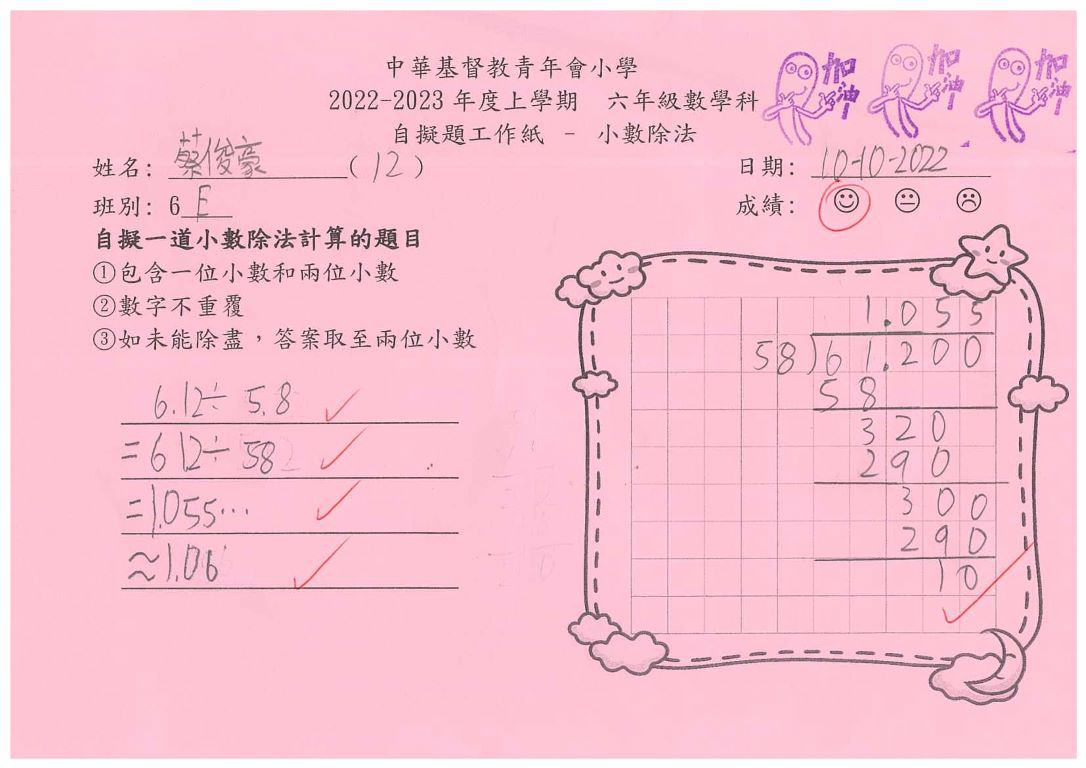 中華基督教青年會小學
2022-2023 年度上學期 六年級數學科
自擬題工作紙 - 小數除法
加油 加油 加油
姓名: 蔡俊豪 (12)
日期: 10-10-2022
班別: 6 E
成績:
自擬一道小數除法計算的題目
①包含一位小數和兩位小數
②數字不重覆
③如未能除盡,答案取至兩位小數
6.12÷ 5.8
=61.2÷ 58
=1.055...
≈1.06
1.055
58)61.200
58
320
290
300
290
10